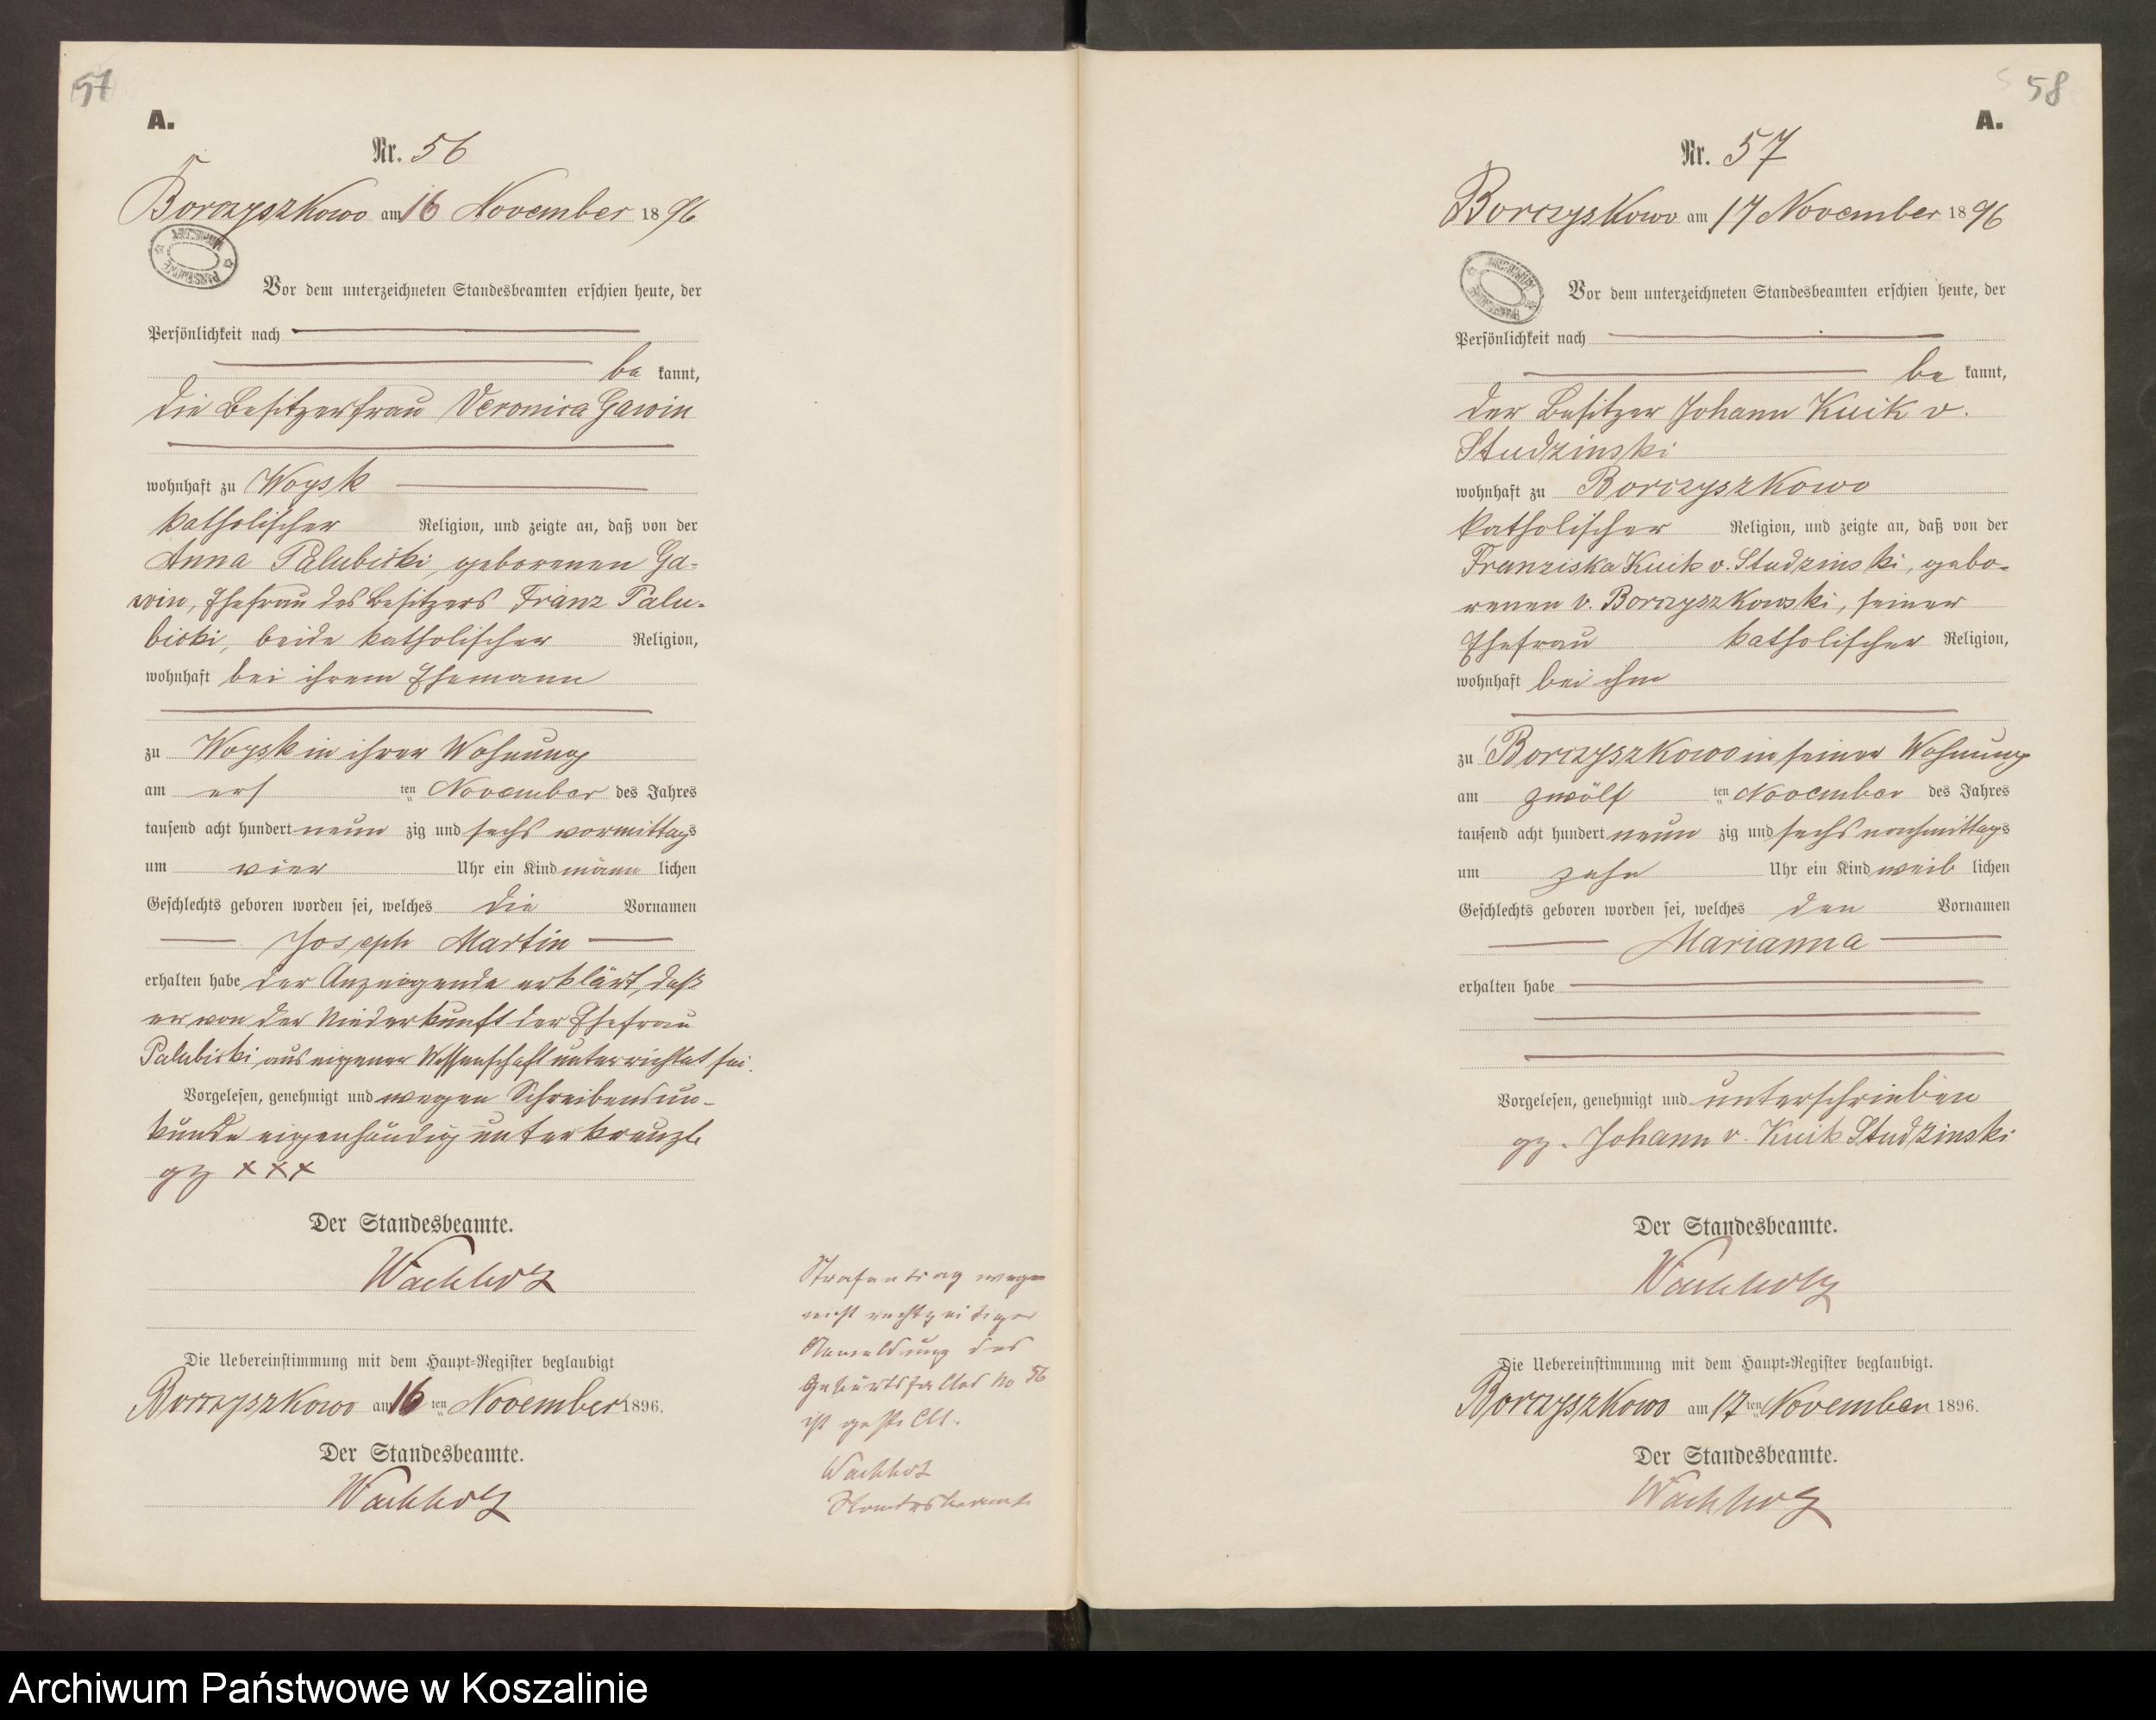 57
A.
Nr. 56
Borczyszkowo am 16 November 1896
Vor dem unterzeichneten Standesbeamten erschien heute, der
Persönlichkeit nach
be kannt,
die Besitzerfrau Veronica Gawin
wohnhaft zu Woysk
katholischer Religion, und zeigte an, daß von der
Anna Palubicki, geborenen Ga-
win, Ehefrau des Besitzers Franz Palu-
bicki, beide katholischer Religion,
wohnhaft bei ihrem Ehemann
zu Woysk in ihrer Wohnung
am erf ten November des Jahres
tausend acht hundert neun zig und sechs vormittags
um vier Uhr ein Kind männ lichen
Geschlechts geboren worden sei, welches die Vornamen
Joseph Martin
erhalten habe der Anzeigende erklärt, daß
er von der Niederkunft der Ehefrau
Palubicki aus eigener Wissenschaft unterrichtet sei.
Vorgelesen, genehmigt und wegen Schreibensun-
kunde eigenhändig unterkreuzt.
gz xxx
Der Standesbeamte.
Wachholz
Die Uebereinstimmung mit dem Haupt-Register beglaubigt
Borczyszkowo am 16 ten November 1896.
Der Standesbeamte.
Wachholz
Strafantrag wegen
nicht rechtzeitiger
Anmeldung des
Geburtsfalles No 56
ist gestellt.
Wachholz
Standesbeamte
58
A.
Nr. 57
Borczyskowo am 17 November 1896
Vor dem unterzeichneten Standesbeamten erschien heute, der
Persönlichkeit nach
be kannt,
der Besitzer Johann Kuik v.
Studzinski
wohnhaft zu Borczyszkowo
katholischer Religion, und zeigte an, daß von der
Franziska Kuik v. Studzinski, gebo-
renen v. Borczyszkowski, seiner
Ehefrau katholischer Religion,
wohnhaft bei ihm
zu Borczyszkowo in seiner Wohnung
am zwölf ten November des Jahres
tausend acht hundert neun zig und sechs nachmittags
um zehn Uhr ein Kind weib lichen
Geschlechts geboren worden sei, welches den Vornamen
Marianna
erhalten habe
Vorgelesen, genehmigt und unterschrieben
gz. Johann v. Kuik Studzinski
Der Standesbeamte.
Wachholz
Die Uebereinstimmung mit dem Haupt-Register beglaubigt.
Borczyszkowo am 17 ten November 1896.
Der Standesbeamte.
Wachholz
Archiwum Państwowe w Koszalinie